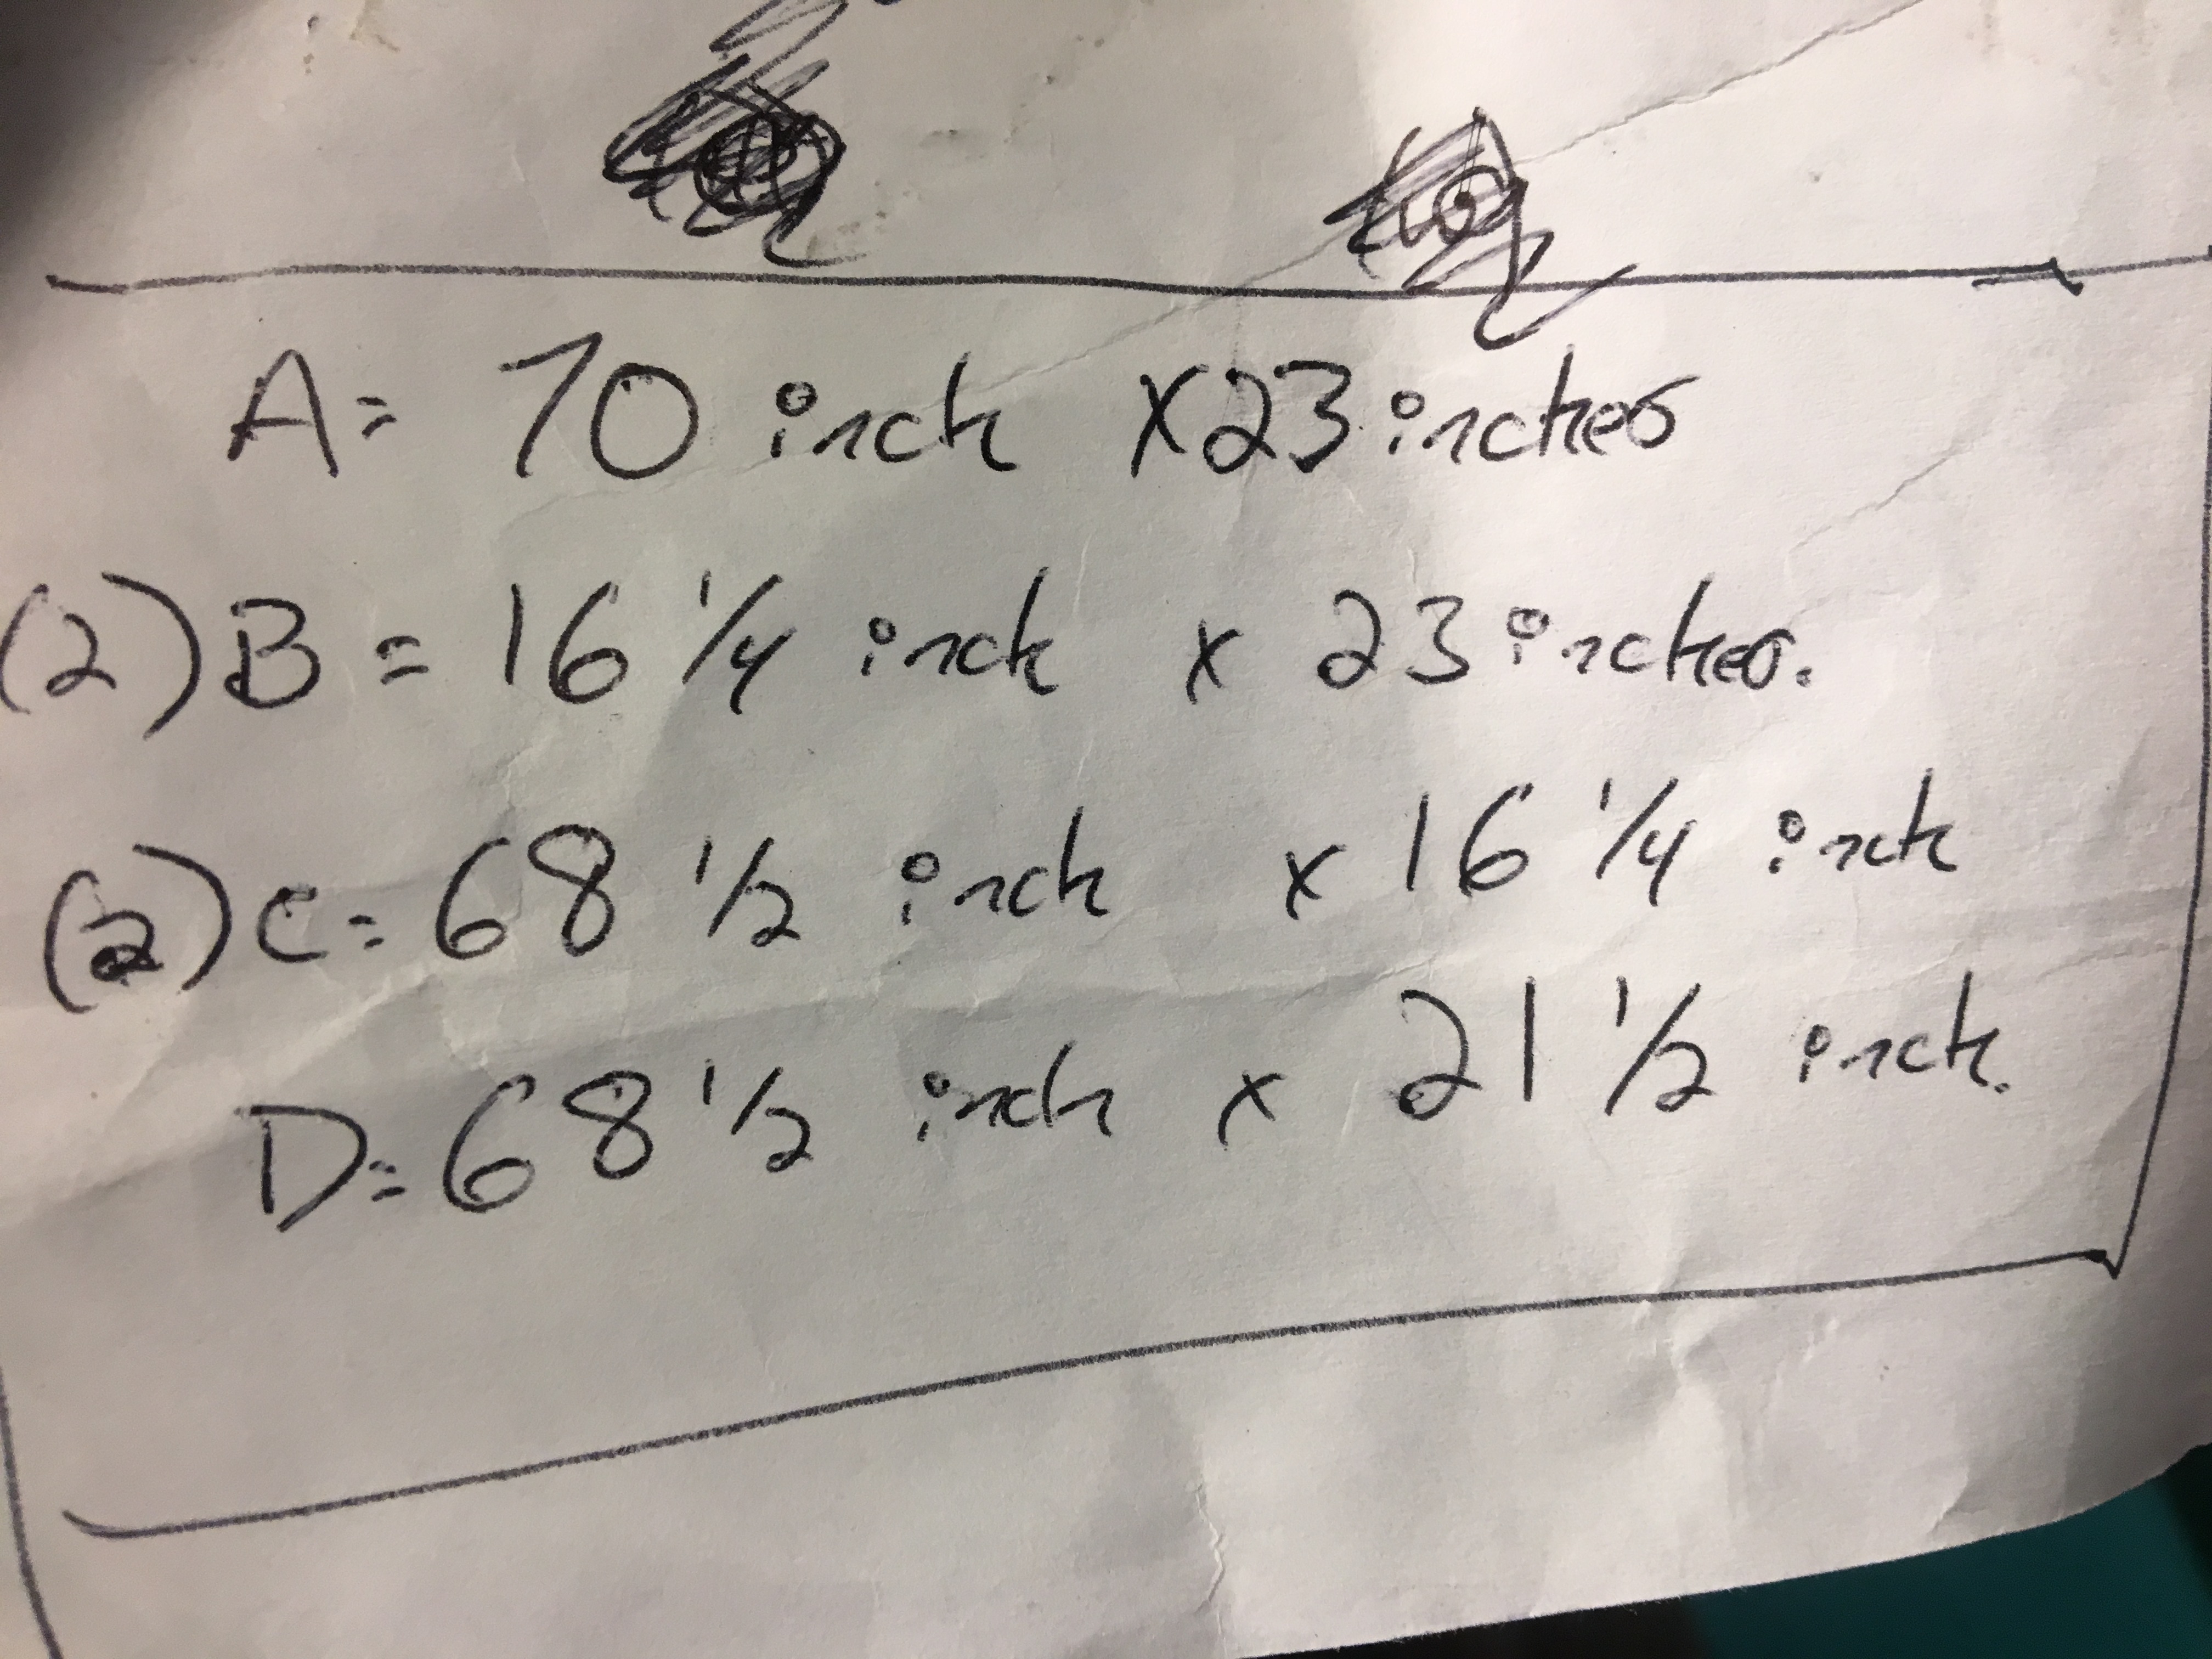 A= 70 inch x 23 inches
(2) B = 16 1/4 inch x 23 inches.
(2) C= 68 1/2 inch x 16 1/4 inch
D= 68 1/2 inch x 21 1/2 inch.